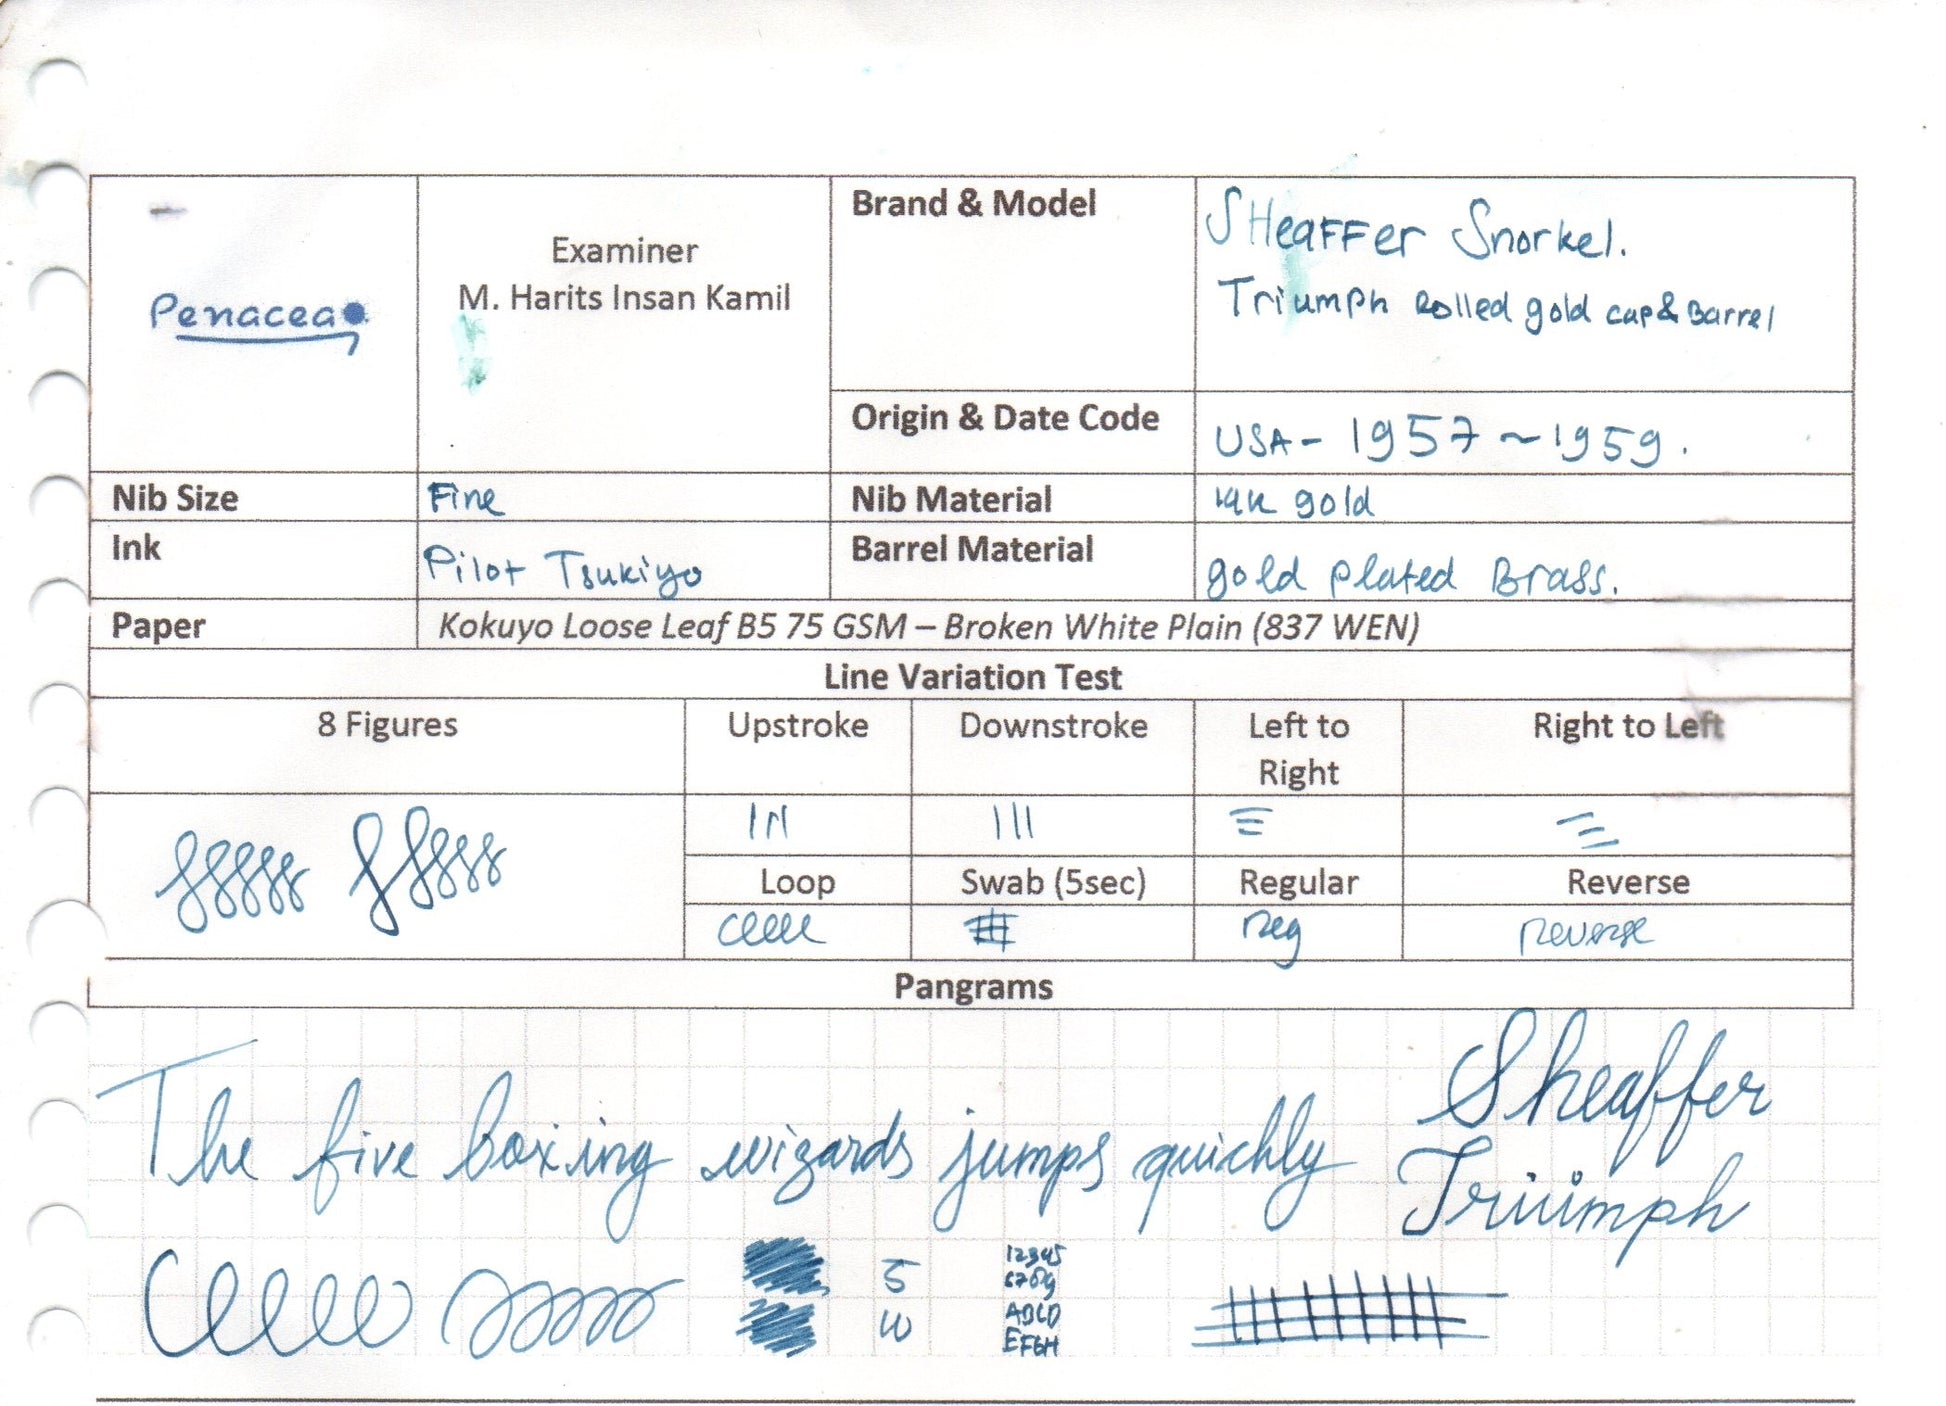 Penacea
Examiner
M. Harits Insan Kamil
Brand & Model
SHeaFFer Snorkel.
Triumph Rolled gold cap & Barrel
Origin & Date Code
USA - 1957 ~ 1959.
Nib Size
Fine
Nib Material
14k gold
Ink
Pilot Tsukiyo
Barrel Material
gold plated Brass.
Paper
Kokuyo Loose Leaf B5 75 GSM – Broken White Plain (837 WEN)
Line Variation Test
8 Figures
Upstroke
Downstroke
Left to
Right
Right to Left
Loop
Swab (5sec)
Regular
Reverse
Reg
Reverse
Pangrams
The five boxing wizards jumps quickly
Sheaffer
Triumph
5
W
12345
6789
ABCD
EFGH